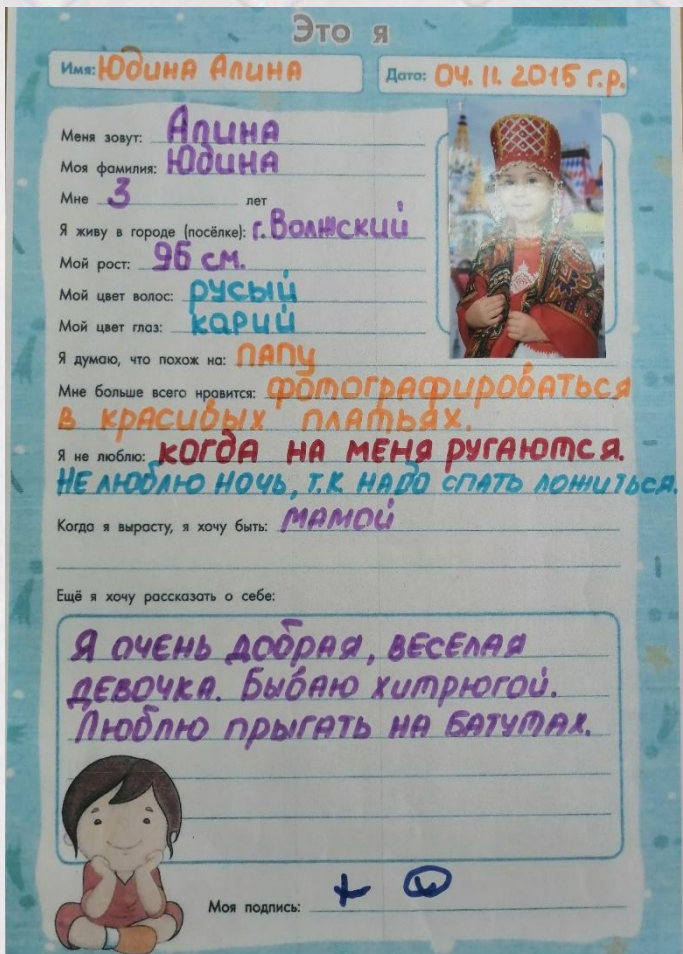 Это я
Имя: Юдина Алина Дата: 04.11.2015 г.р.
Меня зовут: Алина
Моя фамилия: Юдина
Мне 3 лет
Я живу в городе (посёлке): г. Волжский
Мой рост: 96 см.
Мой цвет волос: русый
Мой цвет глаз: карий
Я думаю, что похож на: папу
Мне больше всего нравится: фотографироваться
в красивых платьях.
Я не люблю: когда на меня ругаются.
Не люблю ночь, т.к надо спать ложиться.
Когда я вырасту, я хочу быть: мамой
Ещё я хочу рассказать о себе:
Я очень добрая, веселая
девочка. Бываю хитрюгой.
Люблю прыгать на батутах.
Моя подпись: